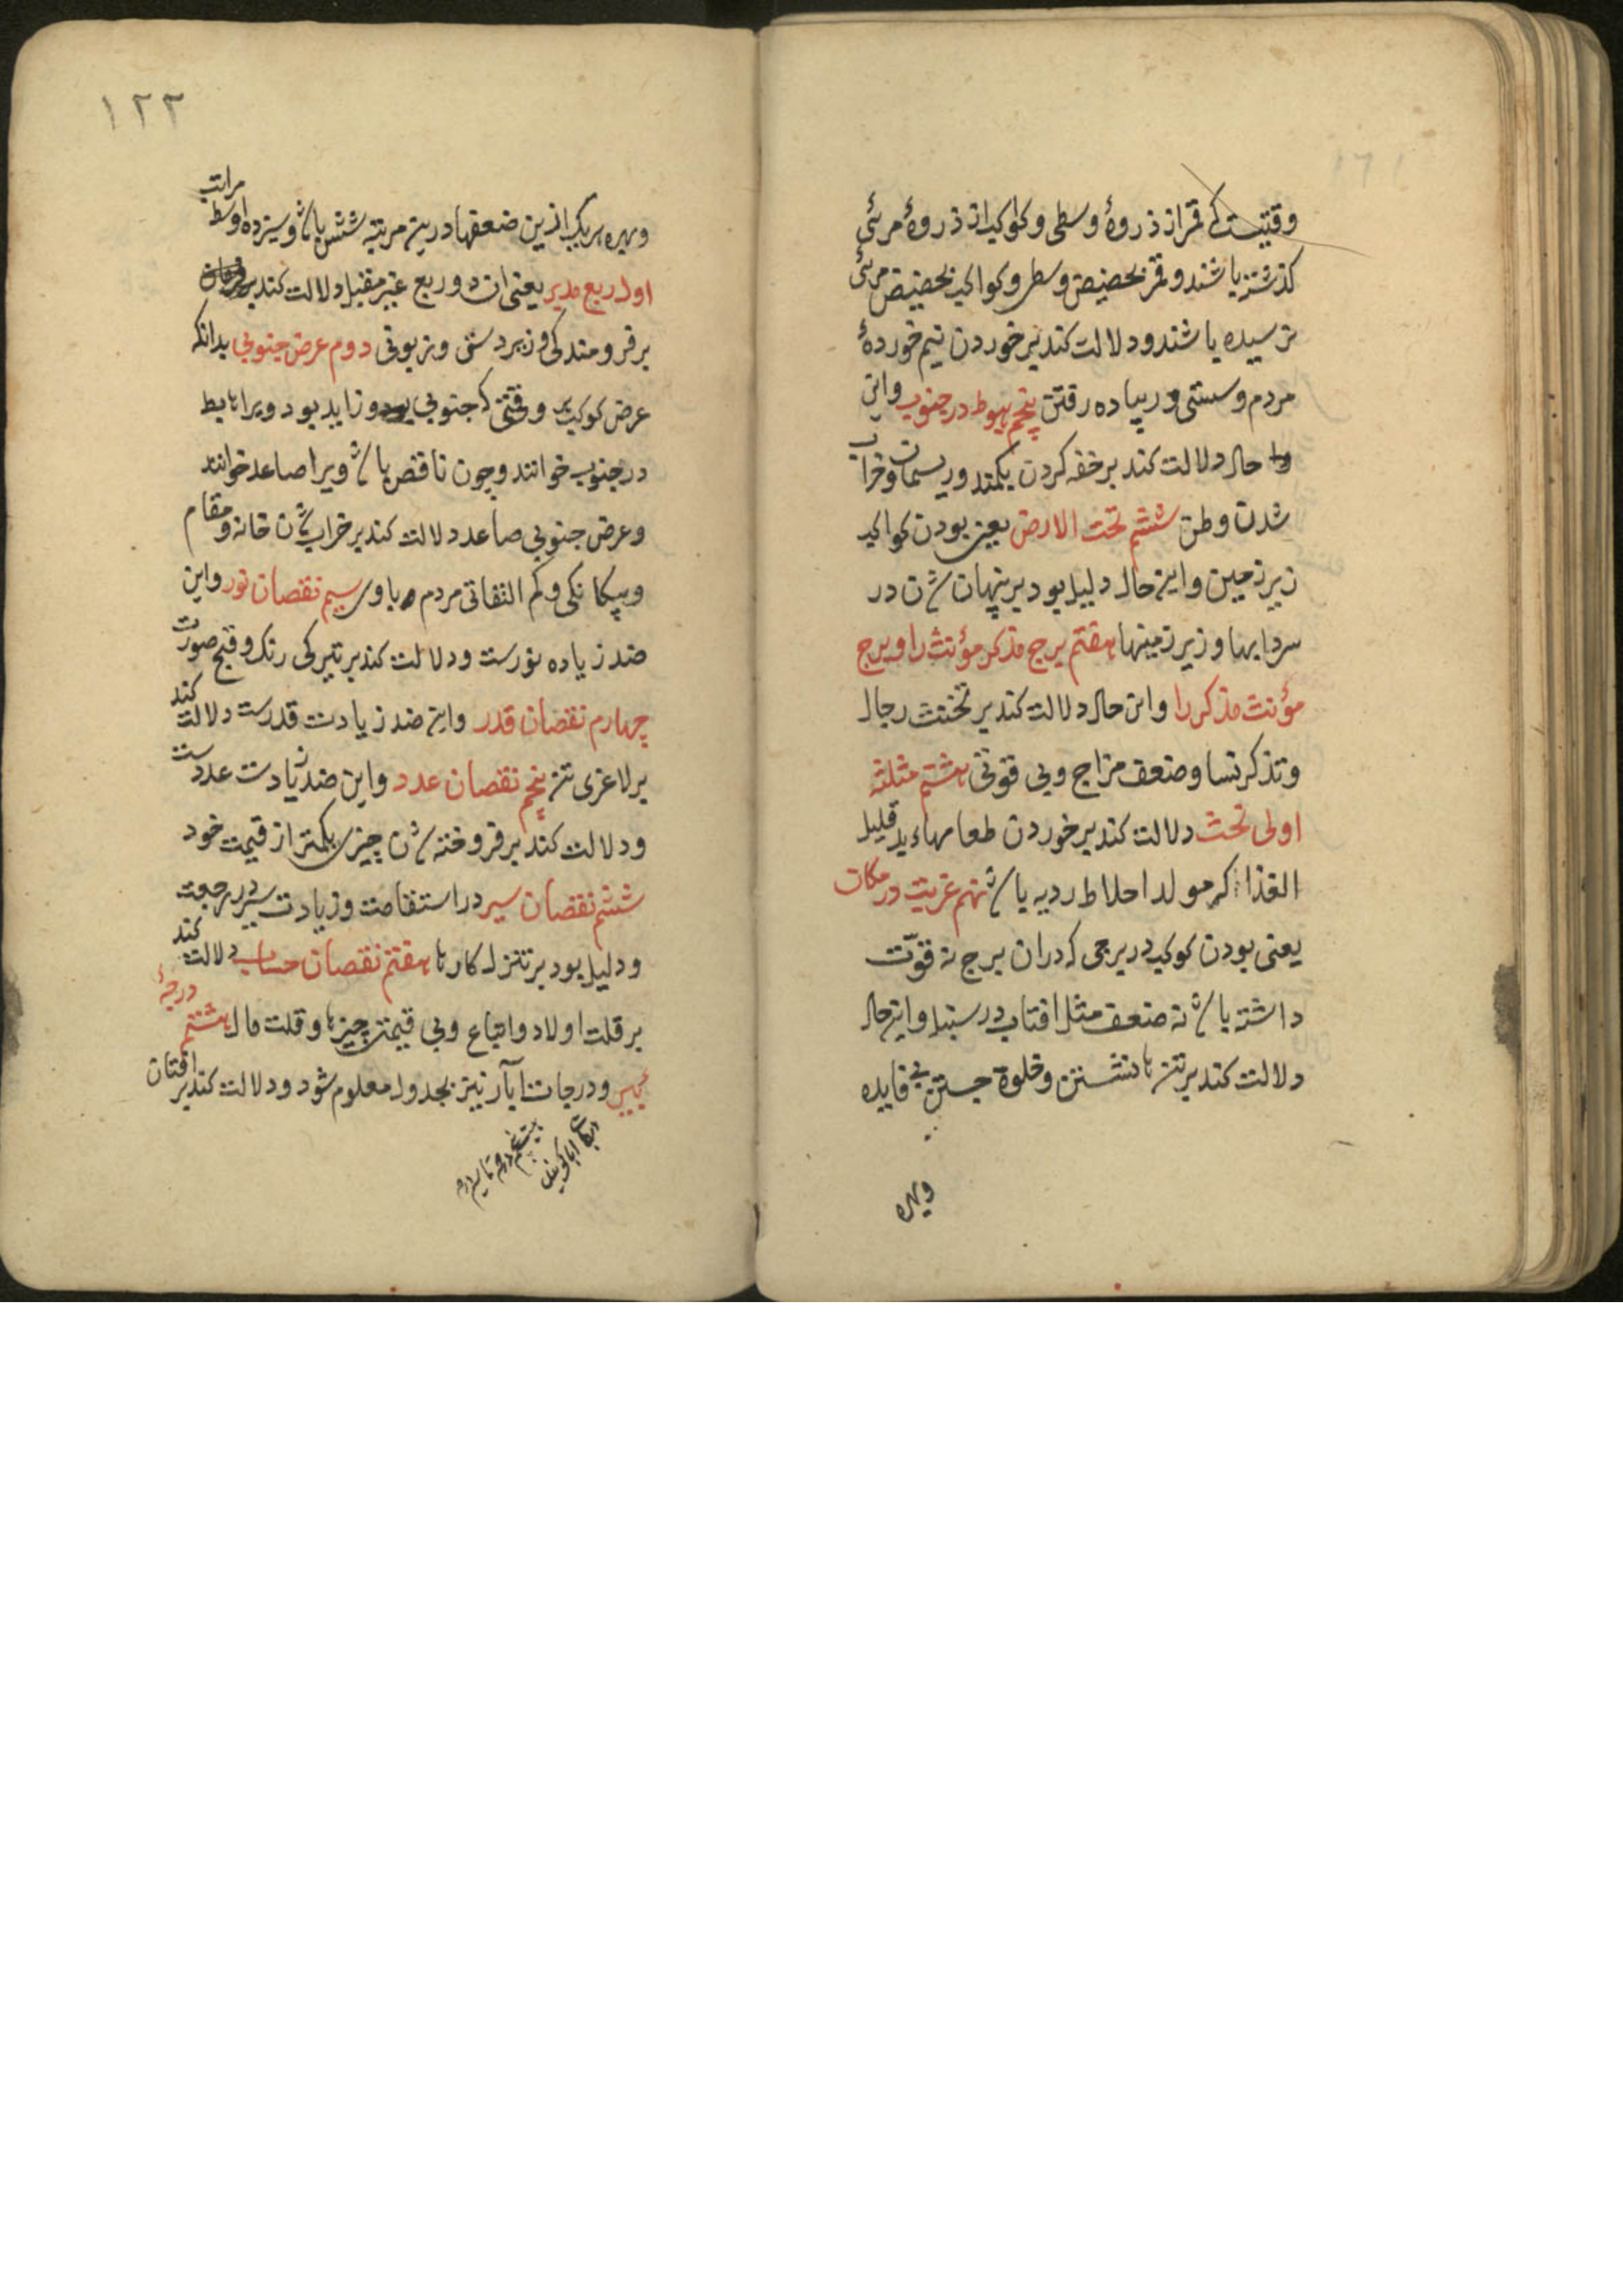 وقتیست که قمر از ذروهٔ وسطی و کواکب از ذروهٔ مرئی
کذشته باشند و قمر بحضیض وسطی و کواکب بحضیض مرئی
نرسیده باشند و دلالت کند بر خوردن نیم خوردهٔ
مردم و سستی و پیاده رفتن پنجم هبوط در جنوب و این
حال دلالت کند بر خفه کردن بکمند و ریسمان و خراب
شدن وطن ششم تحت الارض یعنی بودن کواکب
زیر زمین و این حال دلیل بود بر پنهان شدن در
سردابها و زیر زمینها هفتم برج مذکر مؤنث را و برج
مؤنث مذکر را و این حال دلالت کند بر تخنث رجال
و تذکر نسا و ضعف مزاج و بی قوتی هشتم مثلثه
اولی تحت دلالت کند بر خوردن طعامهاء بد قلیل
الغذا که مولد اخلاط ردیه باشد نهم غربت در مکان
یعنی بودن کوکب در برجی که در ان برج نه قوّت
داشته باشد نه ضعف مثل افتاب در سنبله و این حال
دلالت کند بر تنها نشستن و خلوة جستن بی فایده
وبهره
١٢٢
وبهره هر یک ازین ضعفها درین مرتبه شش باشد و سیزده اوسط مراتب
اول ربع مدبر یعنی ان دو ربع غیر مقبل دلالت کند
بر فرومندکی و زبردستی و زبونی دوم عرض جنوبی بدانکه
عرض کوکب وقتی که جنوبی بود و زاید بود ویرا هابط
در جنوب خوانند و چون ناقص باشد ویرا صاعد خوانند
و عرض جنوبی صاعد دلالت کند بر خراب شدن خانه و مقام
و بیکانکی و کم التفاتی مردم باوی سیم نقصان نور و این
ضد زیاده نورست و دلالت کند بر تیرکی رنک و قبح صورت
چهارم نقصان قدر و این ضد زیادت قدرست دلالت کند
بر لاغری تن پنجم نقصان عدد و این ضد زیادت عددست
و دلالت کند بر فروخته شدن چیزی بکمتر از قیمت خود
ششم نقصان سیر در استقامت و زیادت سیر در رجعت
و دلیل بود بر تنزل کارها هفتم نقصان حساب دلالت کند
بر قلت اولاد و اتباع و بی قیمتی چیزها و قلت مال هشتم درجهٔ
بیر و درجات ابآر نیز بجدول معلوم شود و دلالت کند بر افتان